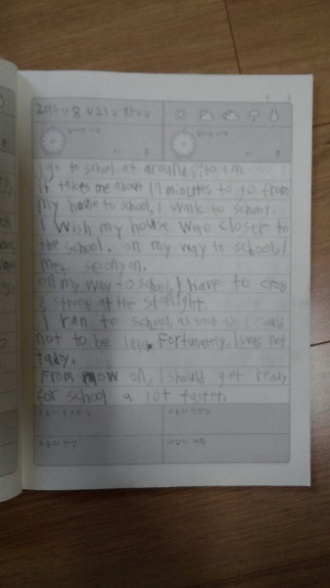 I go to school at around 8:
it takes me about 17 minutes to go from
my house to school, I walk to school
I wish my house was closer to
the school. on my way to school, I
met seonyon.
on my way to school, I have to cross
at the
I ran to school, as fast as I could
not to be late. Fortunately, I was not
tardy.
From now on, I should get ready
for school a lot faster.